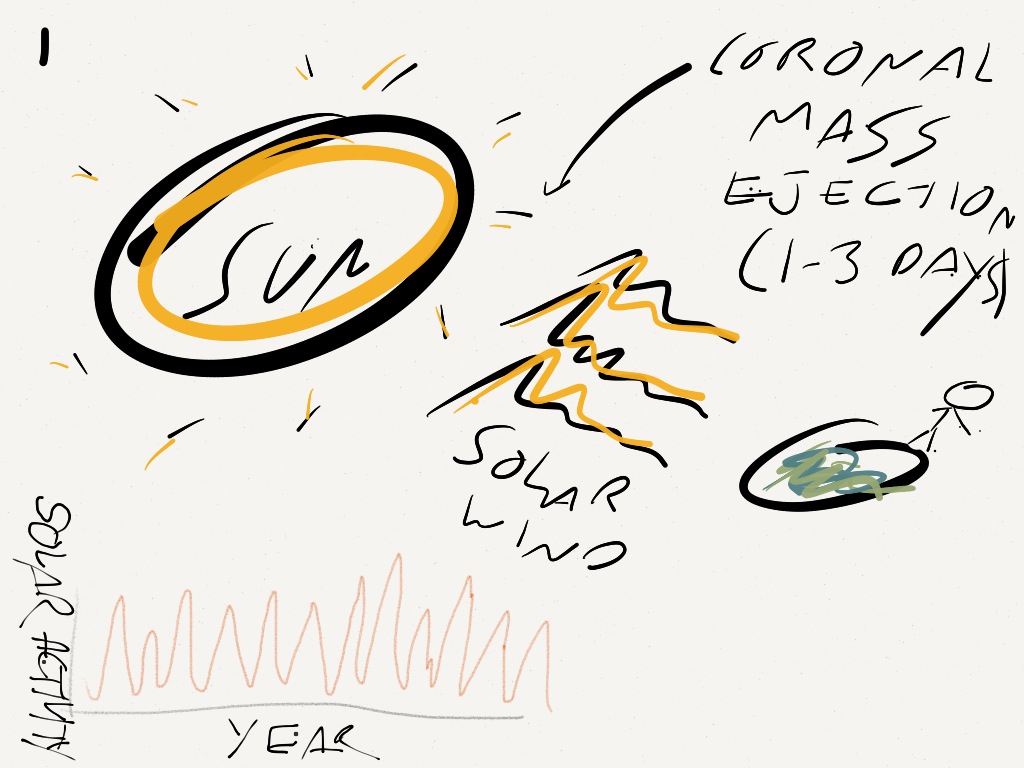 1
CORONAL
MASS
EJECTION
(1-3 DAYS)
SUN
SOLAR
WIND
SOLAR ACTIVITY
YEAR